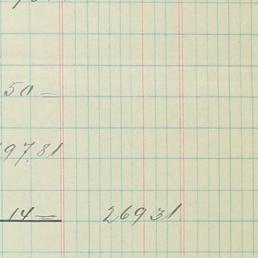 50 =
97.81
14 = 26931